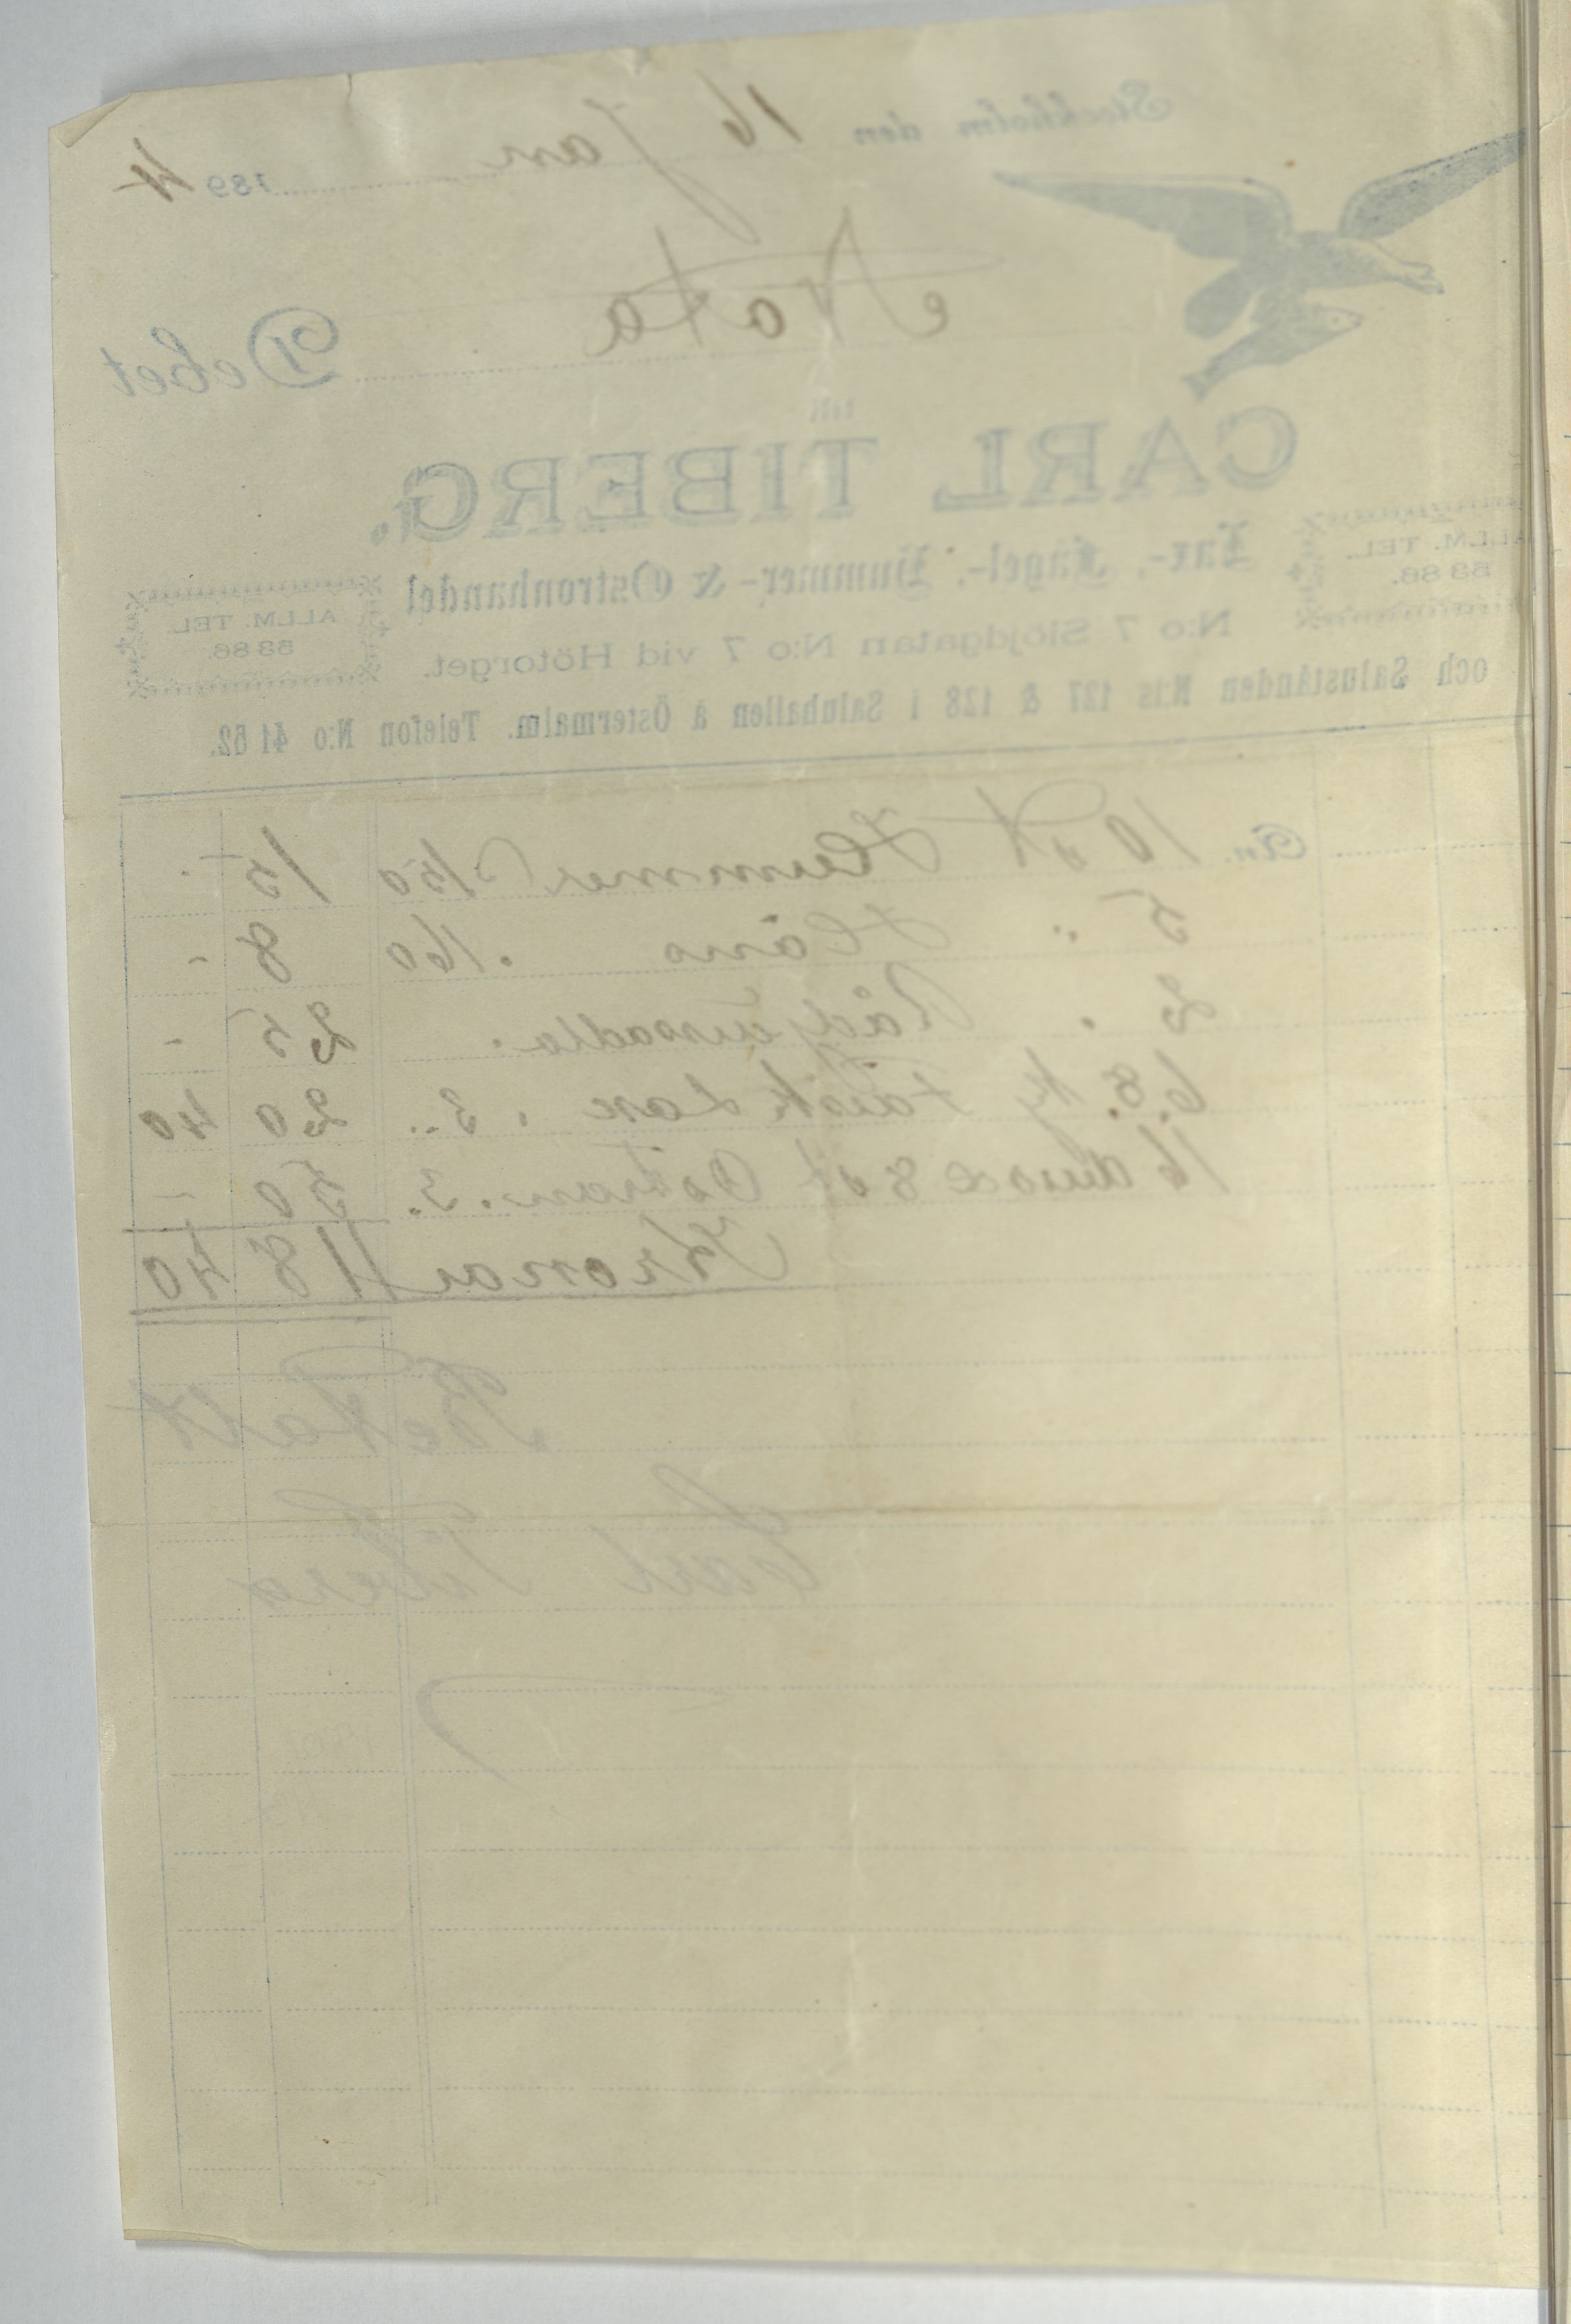 Stockholm den 16 Jan 1894
Nota Debet
till
CARL TIBERG.
Lax-, Fågel-, Hummer- & Ostronhandel
N:o 7 Slöjdgatan N:o 7 vid Hötorget.
ALLM. TEL.
53 86.
ALLM. TEL.
53 86.
och Salustånden N:is 127 & 128 i Saluhallen å Östermalm. Telefon N:o 41 52.
An. 10 st Hummer 150 15 -
5 " Höns . 160 8 -
2 . Rådjurssadla . 25 -
6.8. kg Färsk Lax . 3 .. 20 40
16 duss 8 st Ostron . 3. 50 -
Kronor 118 40
Betalt
Carl Tiberg